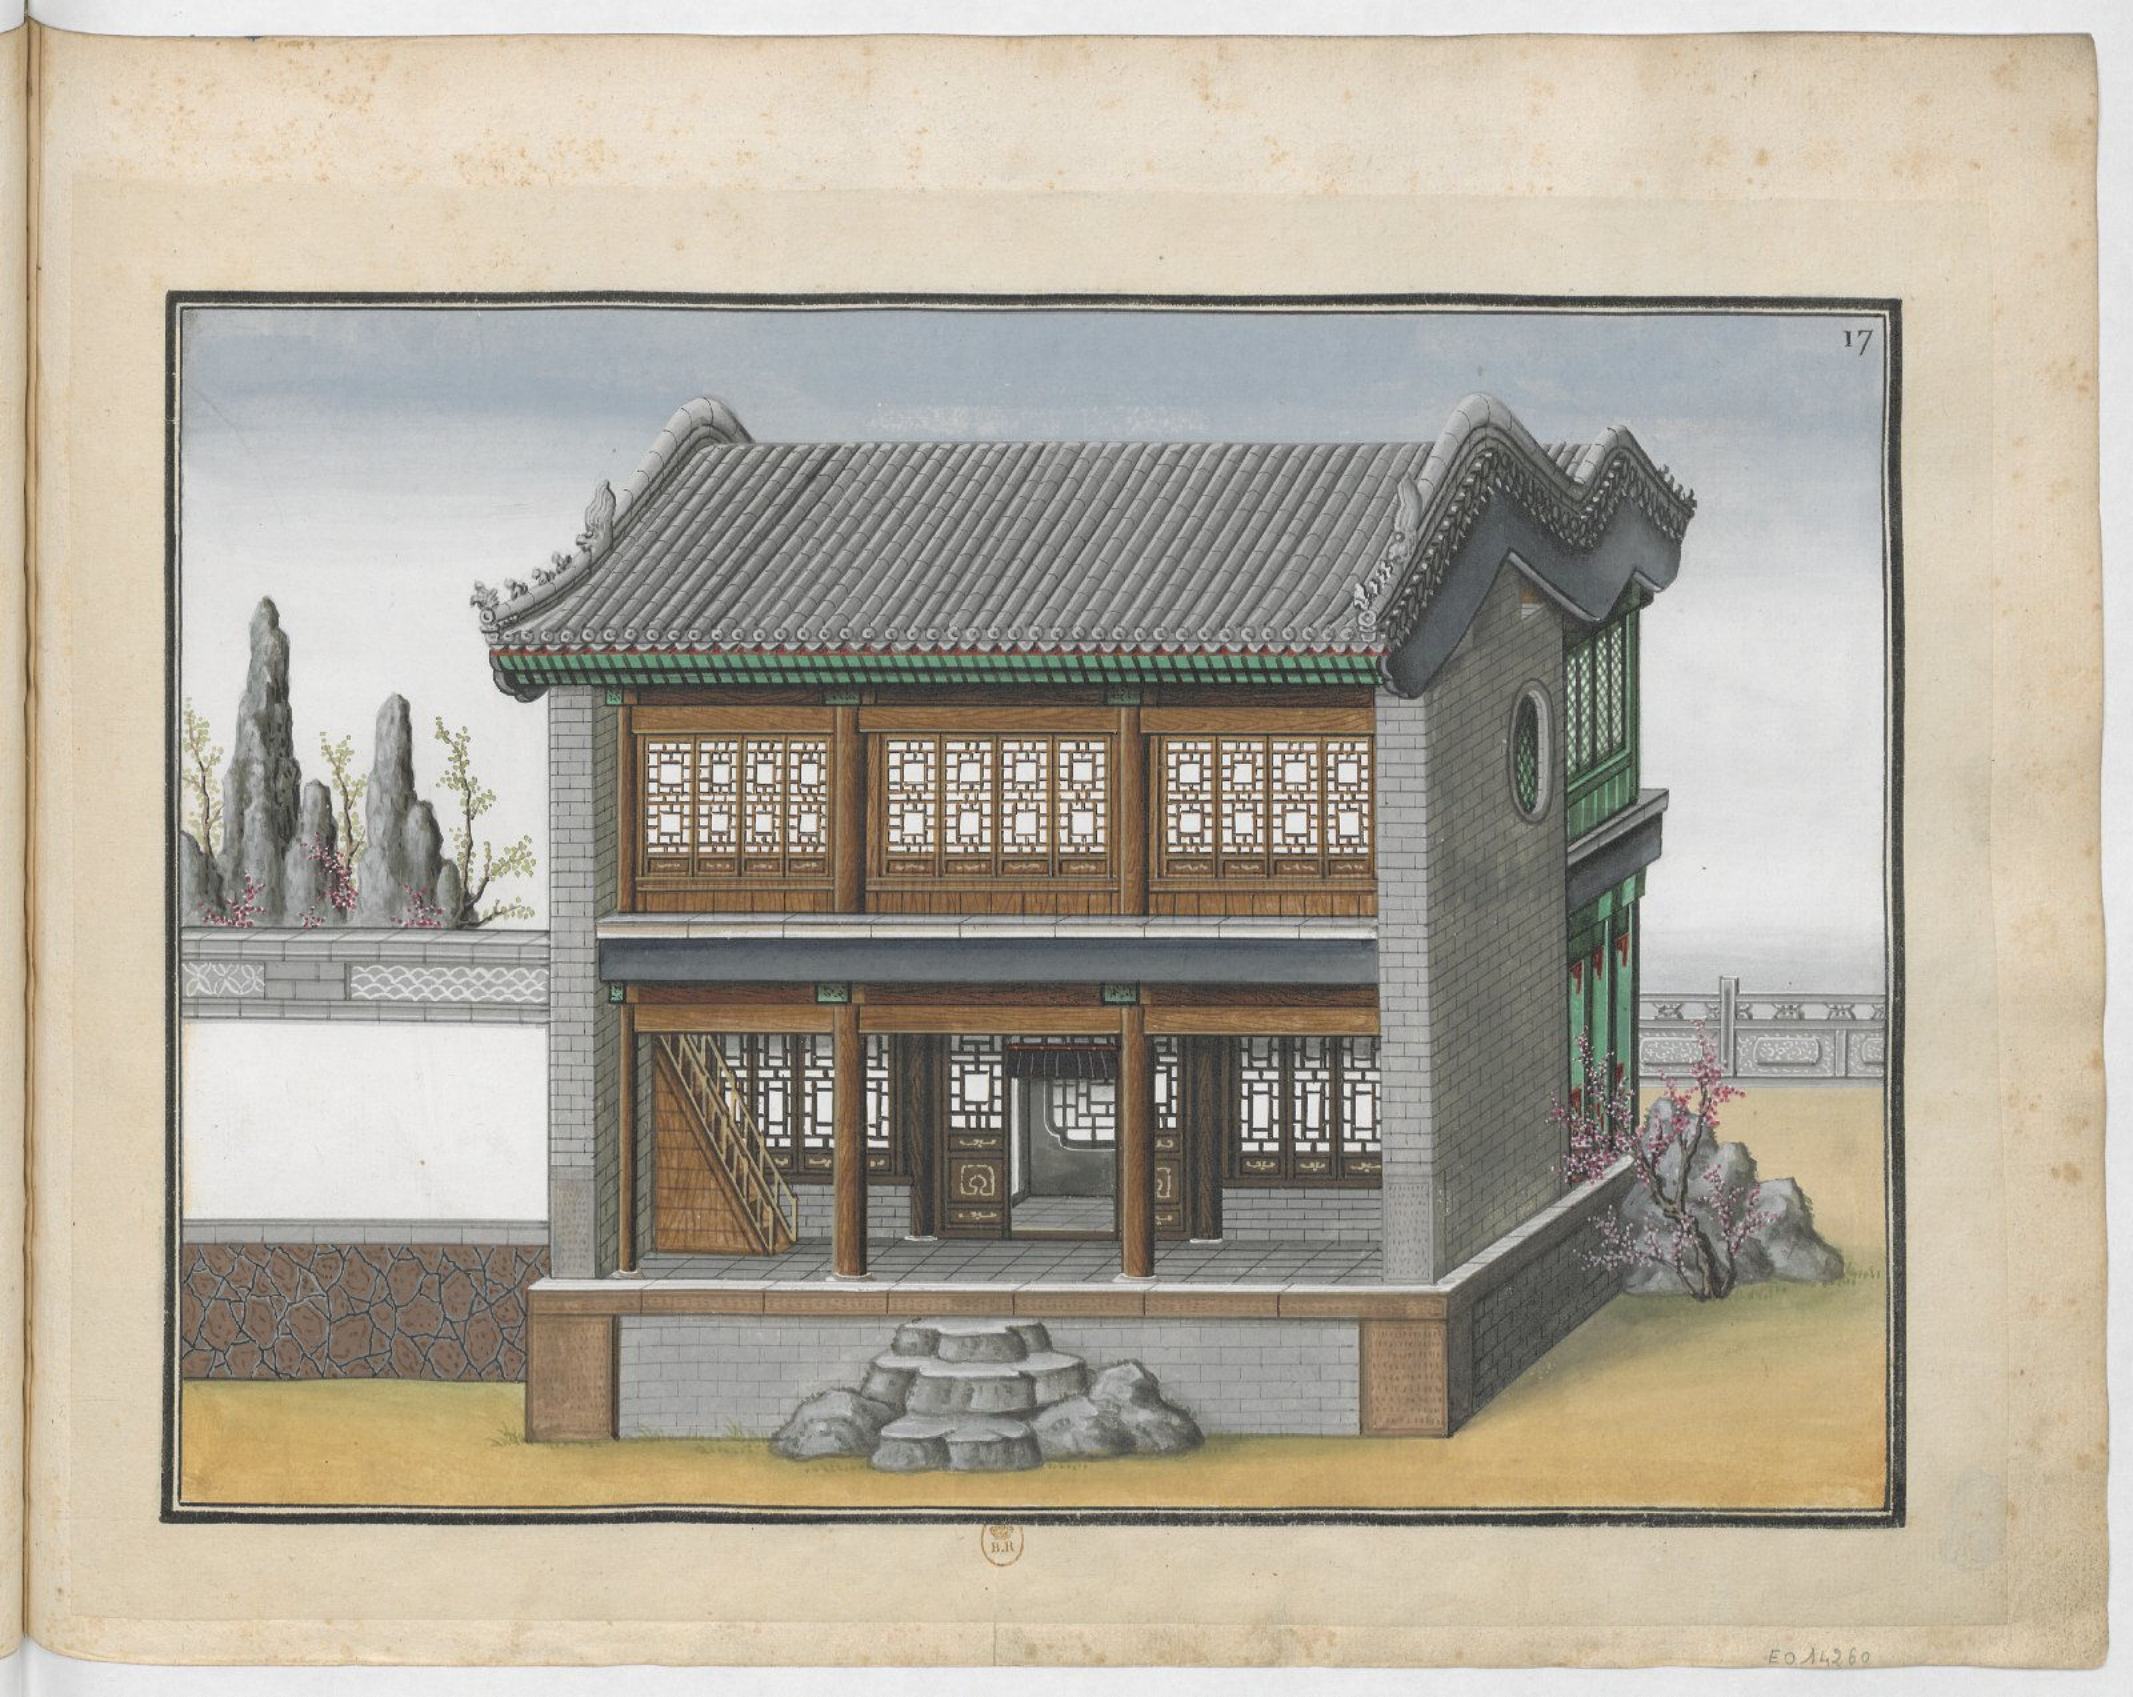 17
B.R
EO 14260